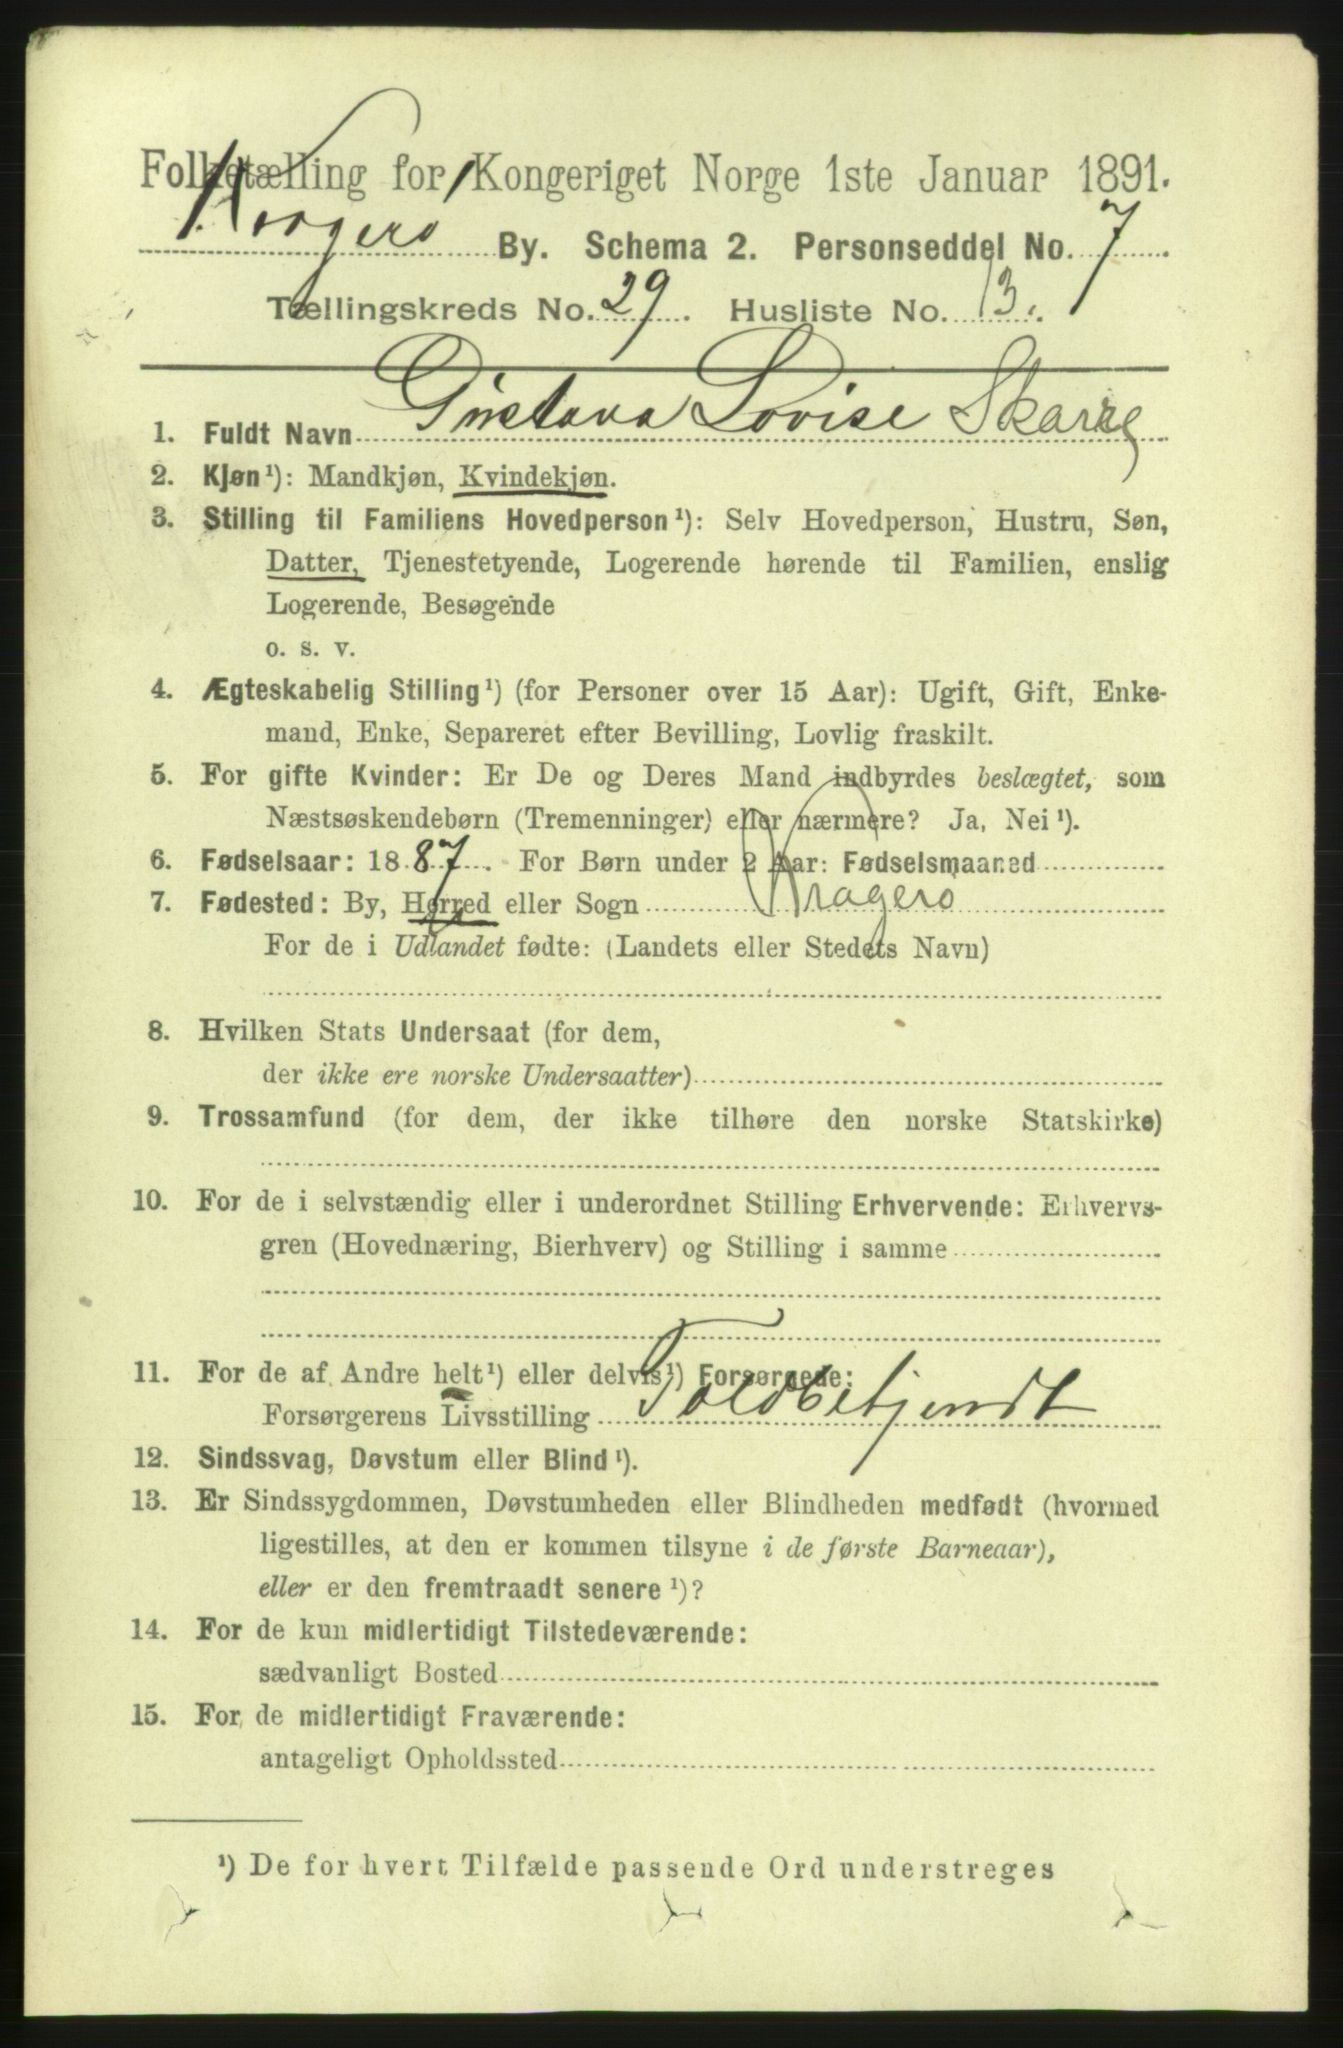 Folketælling for Kongeriget Norge 1ste Januar 1891.
Kragerø By. Schema 2. Personseddel No. 7
Tællingskreds No. 29. Husliste No. 13.
1. Fuldt Navn Gustava Lovise Skarre
2. Kjøn¹): Mandkjøn, Kvindekjøn.
3. Stilling til Familiens Hovedperson¹): Selv Hovedperson, Hustru, Søn,
Datter, Tjenestetyende, Logerende hørende til Familien, enslig
Logerende, Besøgende
o. s. v.
4. Ægteskabelig Stilling¹) (for Personer over 15 Aar): Ugift, Gift, Enke-
mand, Enke, Separeret efter Bevilling, Lovlig fraskilt.
5. For gifte Kvinder: Er De og Deres Mand indbyrdes beslægtet, som
Næstsøskendebørn (Tremenninger) eller nærmere? Ja, Nei¹).
6. Fødselsaar: 1887. For Børn under 2 Aar: Fødselsmaaned
7. Fødested: By, Herred eller Sogn Kragerø
For de i Udlandet fødte: (Landets eller Stedets Navn)
8. Hvilken Stats Undersaat (for dem,
der ikke ere norske Undersaatter)
9. Trossamfund (for dem, der ikke tilhøre den norske Statskirke)
10. For de i selvstændig eller i underordnet Stilling Erhvervende: Erhvervs-
gren (Hovednæring, Bierhverv) og Stilling i samme
11. For de af Andre helt¹) eller delvis¹) Forsørgede:
Forsørgerens Livsstilling Toldbetjendt
12. Sindssvag, Døvstum eller Blind¹).
13. Er Sindssygdommen, Døvstumheden eller Blindheden medfødt (hvormed
ligestilles, at den er kommen tilsyne i de første Barneaar),
eller er den fremtraadt senere¹)?
14. For de kun midlertidigt Tilstedeværende:
sædvanligt Bosted
15. For de midlertidigt Fraværende:
antageligt Opholdssted
¹) De for hvert Tilfælde passende Ord understreges